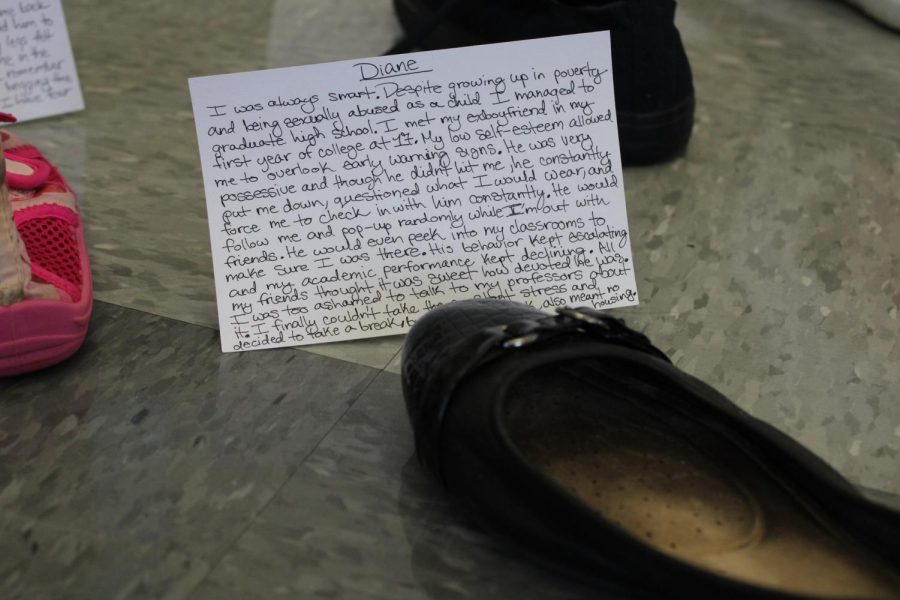 me back
d him to
legs felt
me in the
remember
begging the
I have four
Diane
I was always smart. Despite growing up in poverty
and being sexually abused as a child I managed to
graduate high school. I met my exboyfriend in my
first year of college at 17. My low self-esteem allowed
me to overlook early warning signs. He was very
possessive and though he didn't hit me, he constantly
put me down, questioned what I would wear, and
force me to check in with him constantly. He would
follow me and pop-up randomly while I'm out with
friends. He would even peek into my classrooms to
make sure I was there. His behavior kept escalating
and my academic performance kept declining. All
my friends thought it was sweet how devoted he was.
I was too ashamed to talk to my professors about
it. I finally couldn't take the stress and
decided to take a break, also meant no housing.